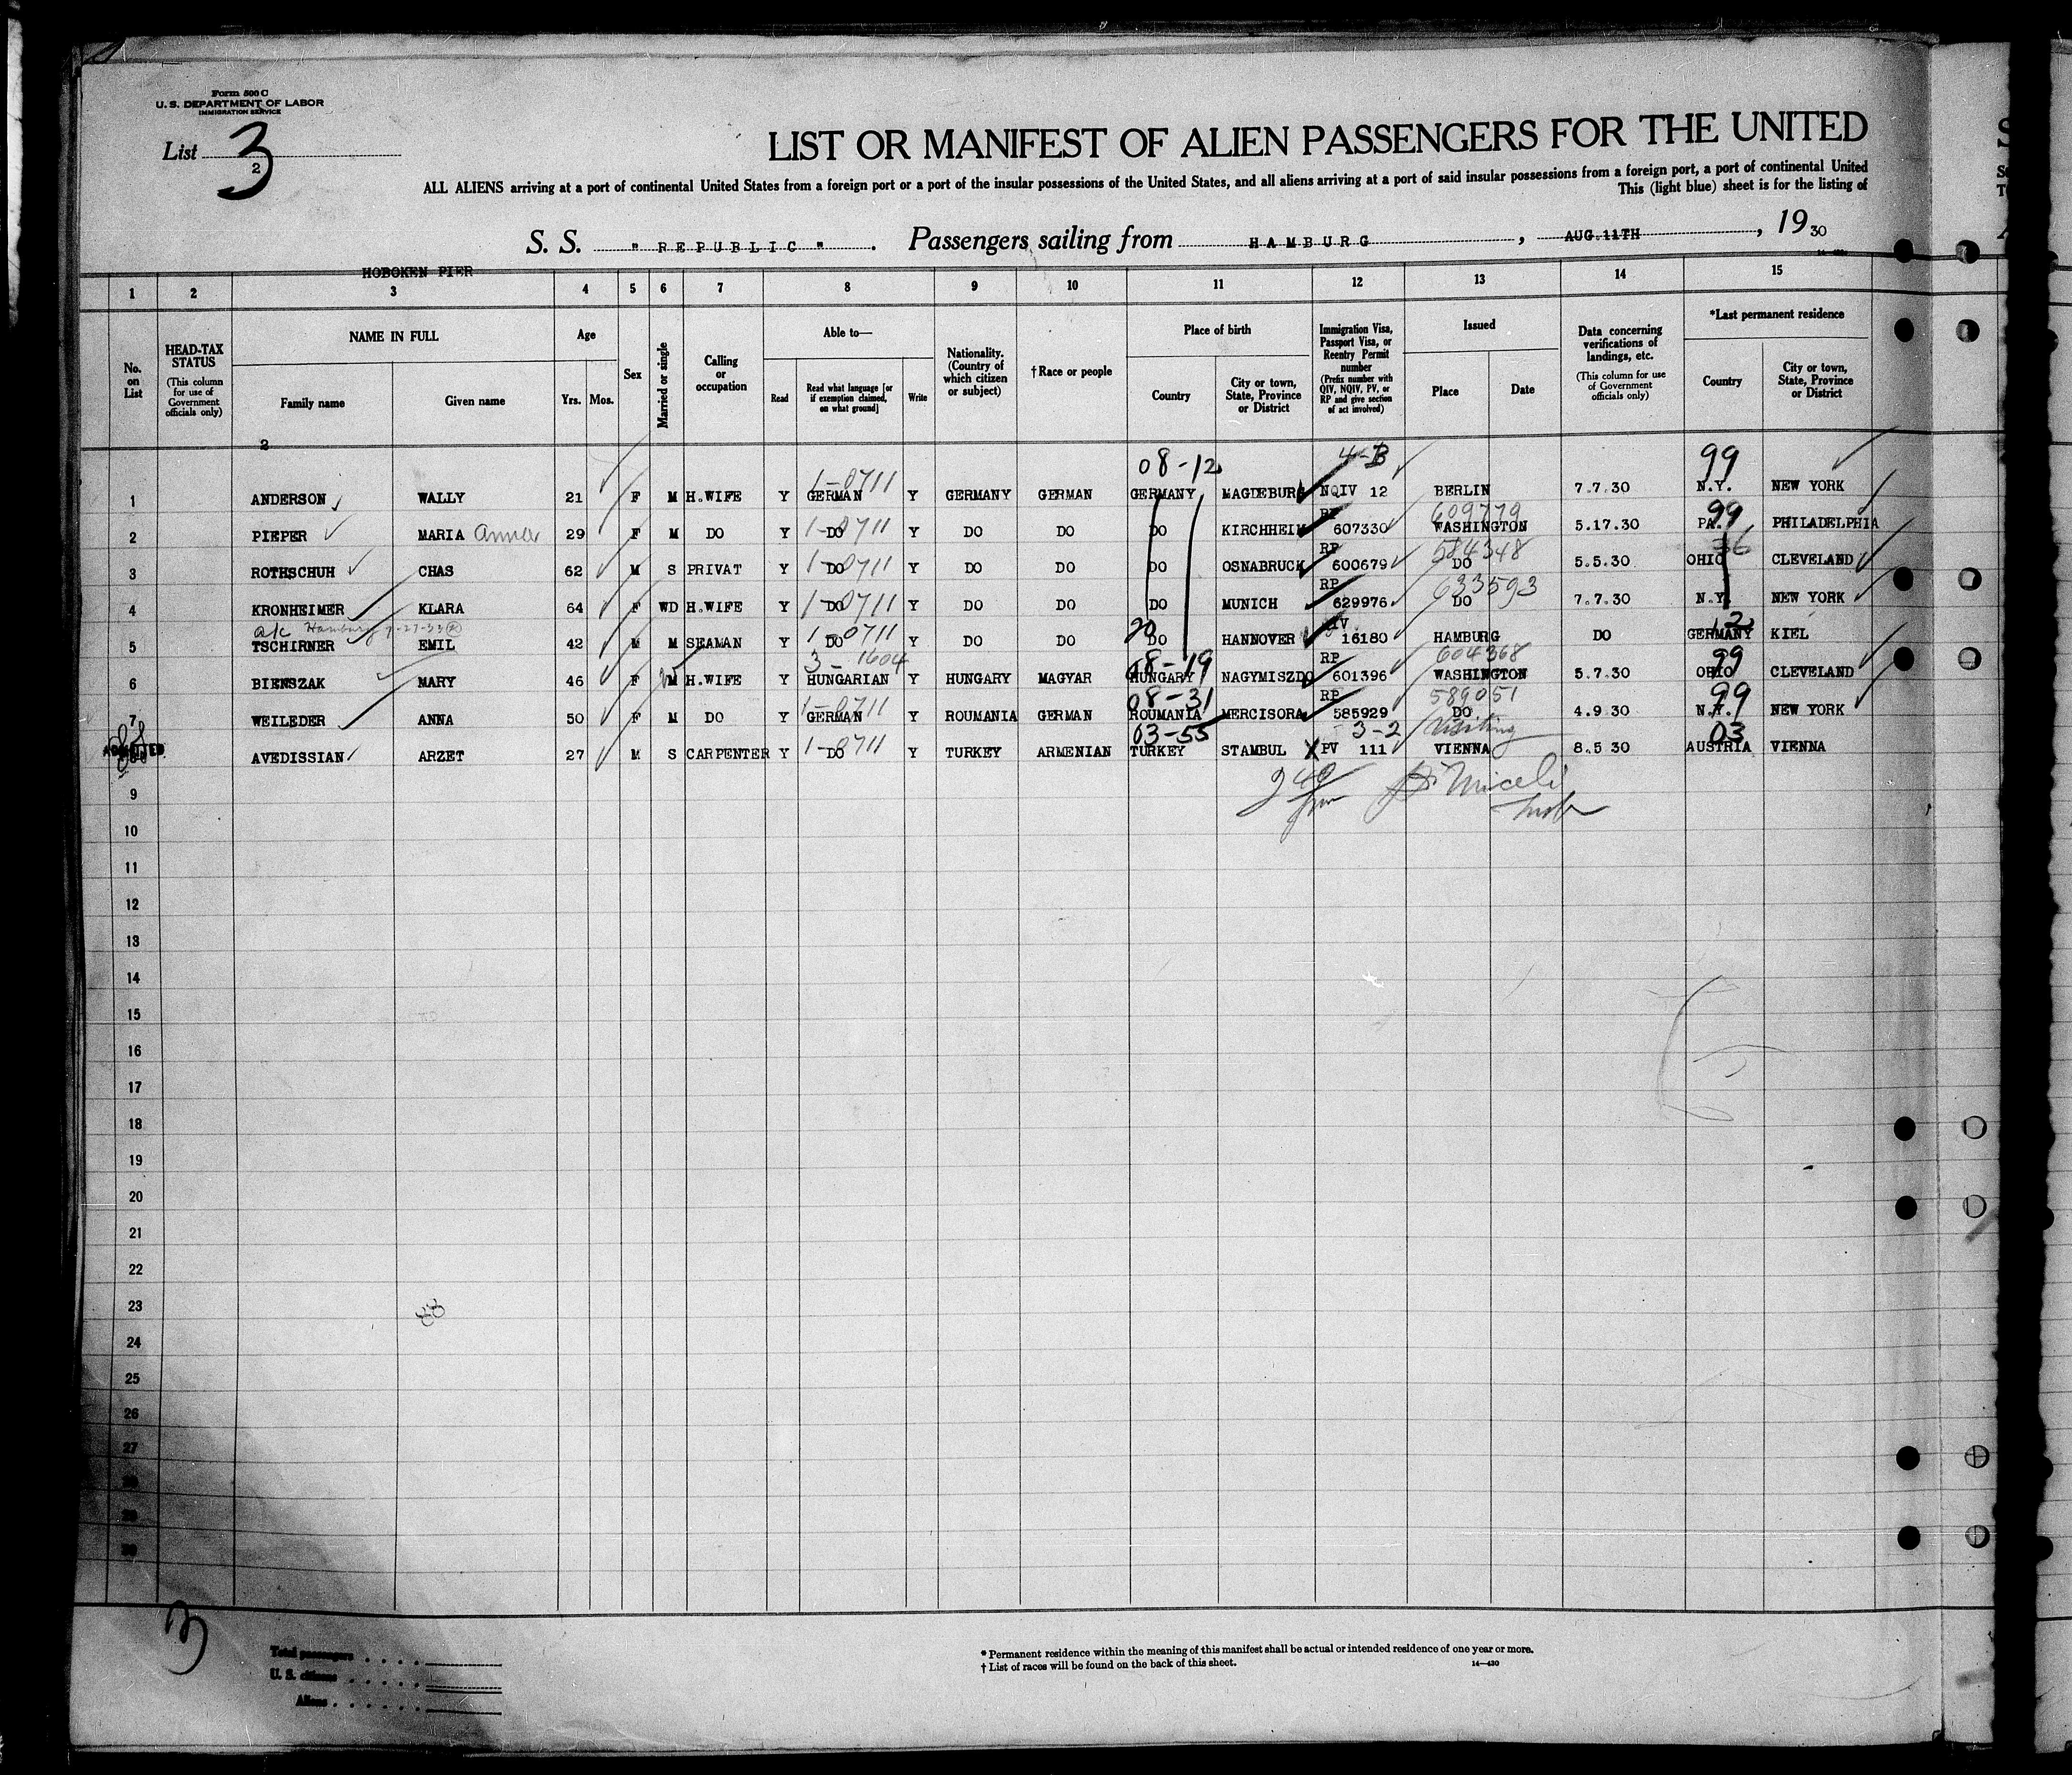 Form 500 C
U. S. DEPARTMENT OF LABOR
IMMIGRATION SERVICE
List 3
2
LIST OR MANIFEST OF ALIEN PASSENGERS FOR THE UNITED
ALL ALIENS arriving at a port of continental United States from a foreign port or a port of the insular possessions of the United States, and all aliens arriving at a port of said insular possessions from a foreign port, a port of continental United
This (light blue) sheet is for the listing of
S. S. "REPUBLIC". Passengers sailing from HAMBURG, AUG.11TH, 19 30
HOBOKEN PIER
1 2 3 4 5 6 7 8 9 10 11 12 13 14 15
No. on List
HEAD-TAX STATUS (This column for use of Government officials only)
NAME IN FULL
Family name Given name
Age
Yrs. Mos.
Sex
Married or single
Calling or occupation
Able to—
Read Read what language [or if exemption claimed, on what ground] Write
Nationality. (Country of which citizen or subject)
† Race or people
Place of birth
Country City or town, State, Province or District
Immigration Visa, Passport Visa, or Reentry Permit number (Prefix number with QIV, NQIV, PV, or RP and give section of act involved)
Issued
Place Date
Data concerning verifications of landings, etc. (This column for use of Government officials only)
*Last permanent residence
Country City or town, State, Province or District
2
08-12 4-B 99
1-0711
1 ANDERSON WALLY 21 F M H.WIFE Y GERMAN Y GERMANY GERMAN GERMANY MAGDEBURG NQIV 12 BERLIN 7.7.30 N.Y. NEW YORK
RP 609779 99
2 PIEPER MARIA Anna 29 F M DO Y 1-0711 DO Y DO DO DO KIRCHHEIM 607330 WASHINGTON 5.17.30 PA. PHILADELPHIA
RP 584348 36
3 ROTHSCHUH CHAS 62 M S PRIVAT Y 1-0711 DO Y DO DO DO OSNABRUCK 600679 DO 5.5.30 OHIO CLEVELAND
RP 633593
4 KRONHEIMER KLARA 64 F WD H.WIFE Y 1-0711 DO Y DO DO DO MUNICH 629976 DO 7.7.30 N.Y. NEW YORK
a/c Hamburg 7-27-33 20 12
5 TSCHIRNER EMIL 42 M M SEAMAN Y 1-0711 DO Y DO DO DO HANNOVER 16180 HAMBURG DO GERMANY KIEL
3-1604 08-19 RP 604368 99
6 BIENSZAK MARY 46 F M H.WIFE Y HUNGARIAN Y HUNGARY MAGYAR HUNGARY NAGYMISZDO 601396 WASHINGTON 5.7.30 OHIO CLEVELAND
1-0711 08-31 RP 589051 99
7 WEILEDER ANNA 50 F M DO Y GERMAN Y ROUMANIA GERMAN ROUMANIA MERCISORA 585929 DO 4.9.30 N.Y. NEW YORK
ADMITTED 03-55 3-2 Visiting 03
AVEDISSIAN ARZET 27 M S CARPENTER Y 1-0711 DO Y TURKEY ARMENIAN TURKEY STAMBUL PV 111 VIENNA 8.5 30 AUSTRIA VIENNA
240 Miceli
9
10
11
12
13
14
15
16
17
18
19
20
21
22
23
88
24
25
26
27
28
29
30
3
Total passengers
U. S. citizens
Aliens
* Permanent residence within the meaning of this manifest shall be actual or intended residence of one year or more.
† List of races will be found on the back of this sheet.
14—430